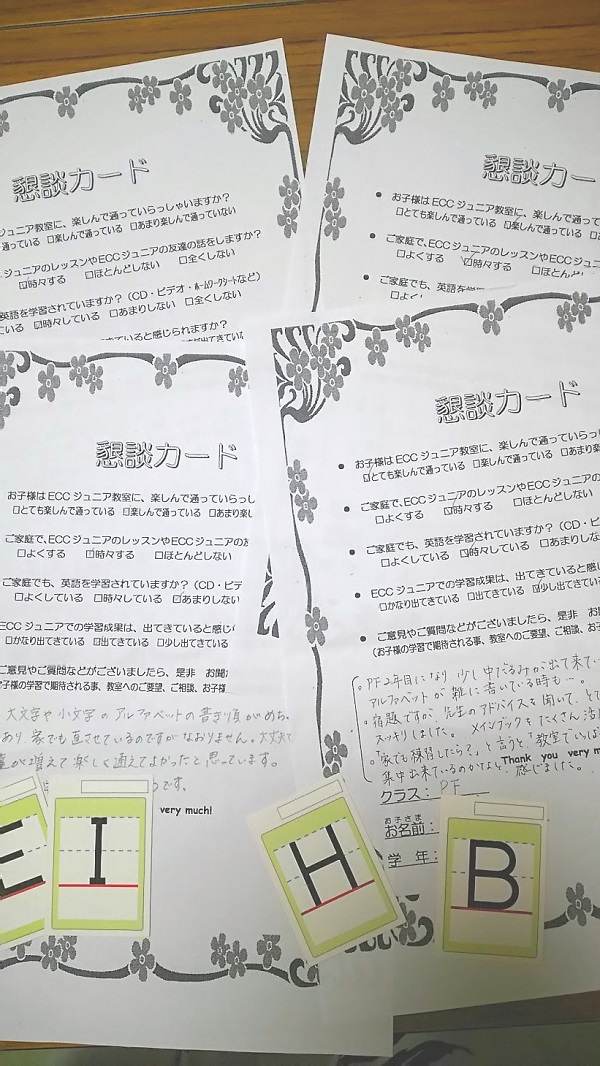 懇談カード
ジュニア教室に、楽しんで通っていらっしゃいますか？
通っている ☐楽しんで通っている ☐あまり楽しんで通っていない
ジュニアのレッスンやECCジュニアの友達の話をしますか？
☑時々する ☐ほとんどしない ☐全くしない
英語を学習されていますか？（CD・ビデオ・ホームワークシートなど）
いる ☑時々している ☐あまりしない ☐全くしない
ていると感じられますか？
懇談カー
● お子様はECCジュニア教室に、楽しんで通って
☐とても楽しんで通っている ☑楽しんで通っている
● ご家庭で、ECCジュニアのレッスンやECC
☐よくする ☑時々する ☐ほとんど
● ご家庭でも、英語を学
☐よく
懇談カード
お子様はECCジュニア教室に、楽しんで通っていらっし
☐とても楽しんで通っている ☑楽しんで通っている ☐あまり楽し
ご家庭で、ECCジュニアのレッスンやECCジュニアの友
☐よくする ☑時々する ☐ほとんどしない
ご家庭でも、英語を学習されていますか？（CD・ビデ
☐よくしている ☐時々している ☑あまりしない
ECCジュニアでの学習成果は、出てきていると感じ
☐かなり出てきている ☑出てきている ☐少し出てきている
ご意見やご質問などがございましたら、是非 お聞
お子様の学習で期待される事、教室へのご要望、ご相談、お子様
大文字や小文字のアルファベットの書き順がめち
あり 家でも直させているのですがなおりません。大丈夫で
が増えて楽しく通えてよかったと思っています。
です。
very much!
懇談カード
● お子様はECCジュニア教室に、楽しんで通っていらっ
☑とても楽しんで通っている ☐楽しんで通っている ☐あまり楽
● ご家庭で、ECCジュニアのレッスンやECCジュニア
☐よくする ☑時々する ☐ほとんどしない
● ご家庭でも、英語を学習されていますか？（CD・ビ
☐よくしている ☑時々している ☐あまりしな
● ECCジュニアでの学習成果は、出てきていると感
☐かなり出てきている ☐出てきている ☑少し出てきてい
● ご意見やご質問などがございましたら、是非 お
（お子様の学習で期待される事、教室へのご要望、ご相談、お子
。PF2年目になり 少し中だるみが出て来てい
アルファベットが雑に書いている時も…。
・宿題ですが、先生のアドバイスを聞いて、とて
スッキリしました。 メインブックをたくさん活
・「家でも練習したら？」と言うと、「教室でいっぱ
Thank you very m
集中出来ているのかなと、感じました。
クラス： PF
お子さま
お名前：
学 年：
E
I
H
B